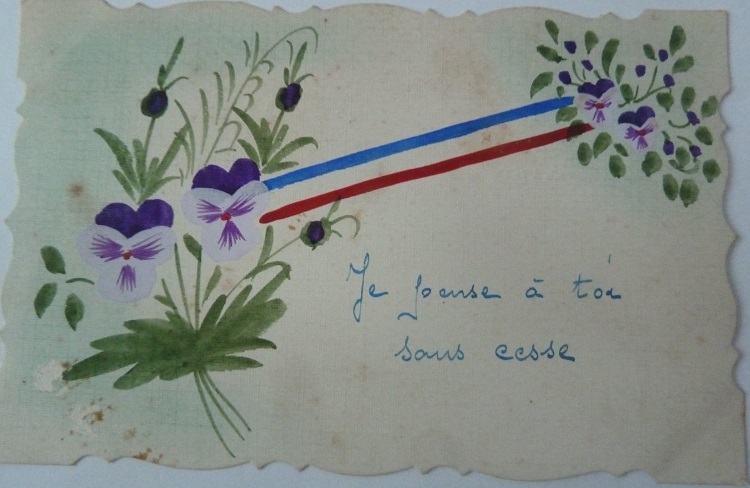 Je pense à toi
sans cesse